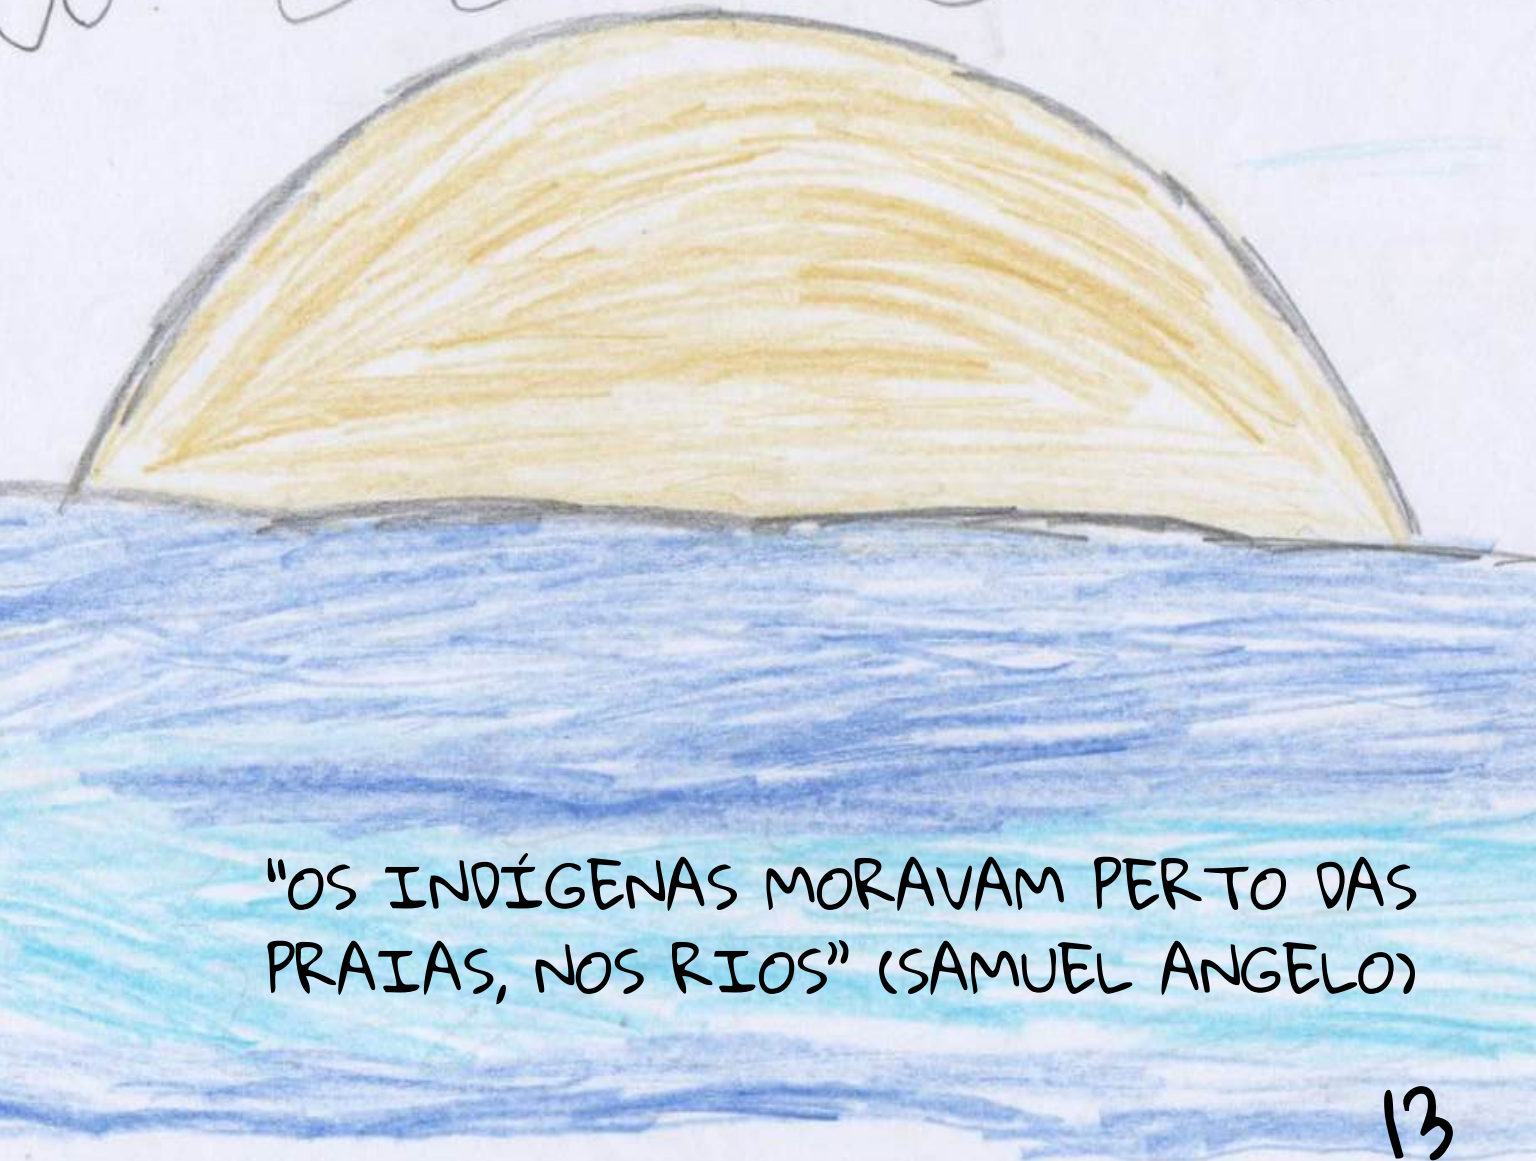 "OS INDÍGENAS MORAVAM PERTO DAS
PRAIAS, NOS RIOS" (SAMUEL ANGELO)
13